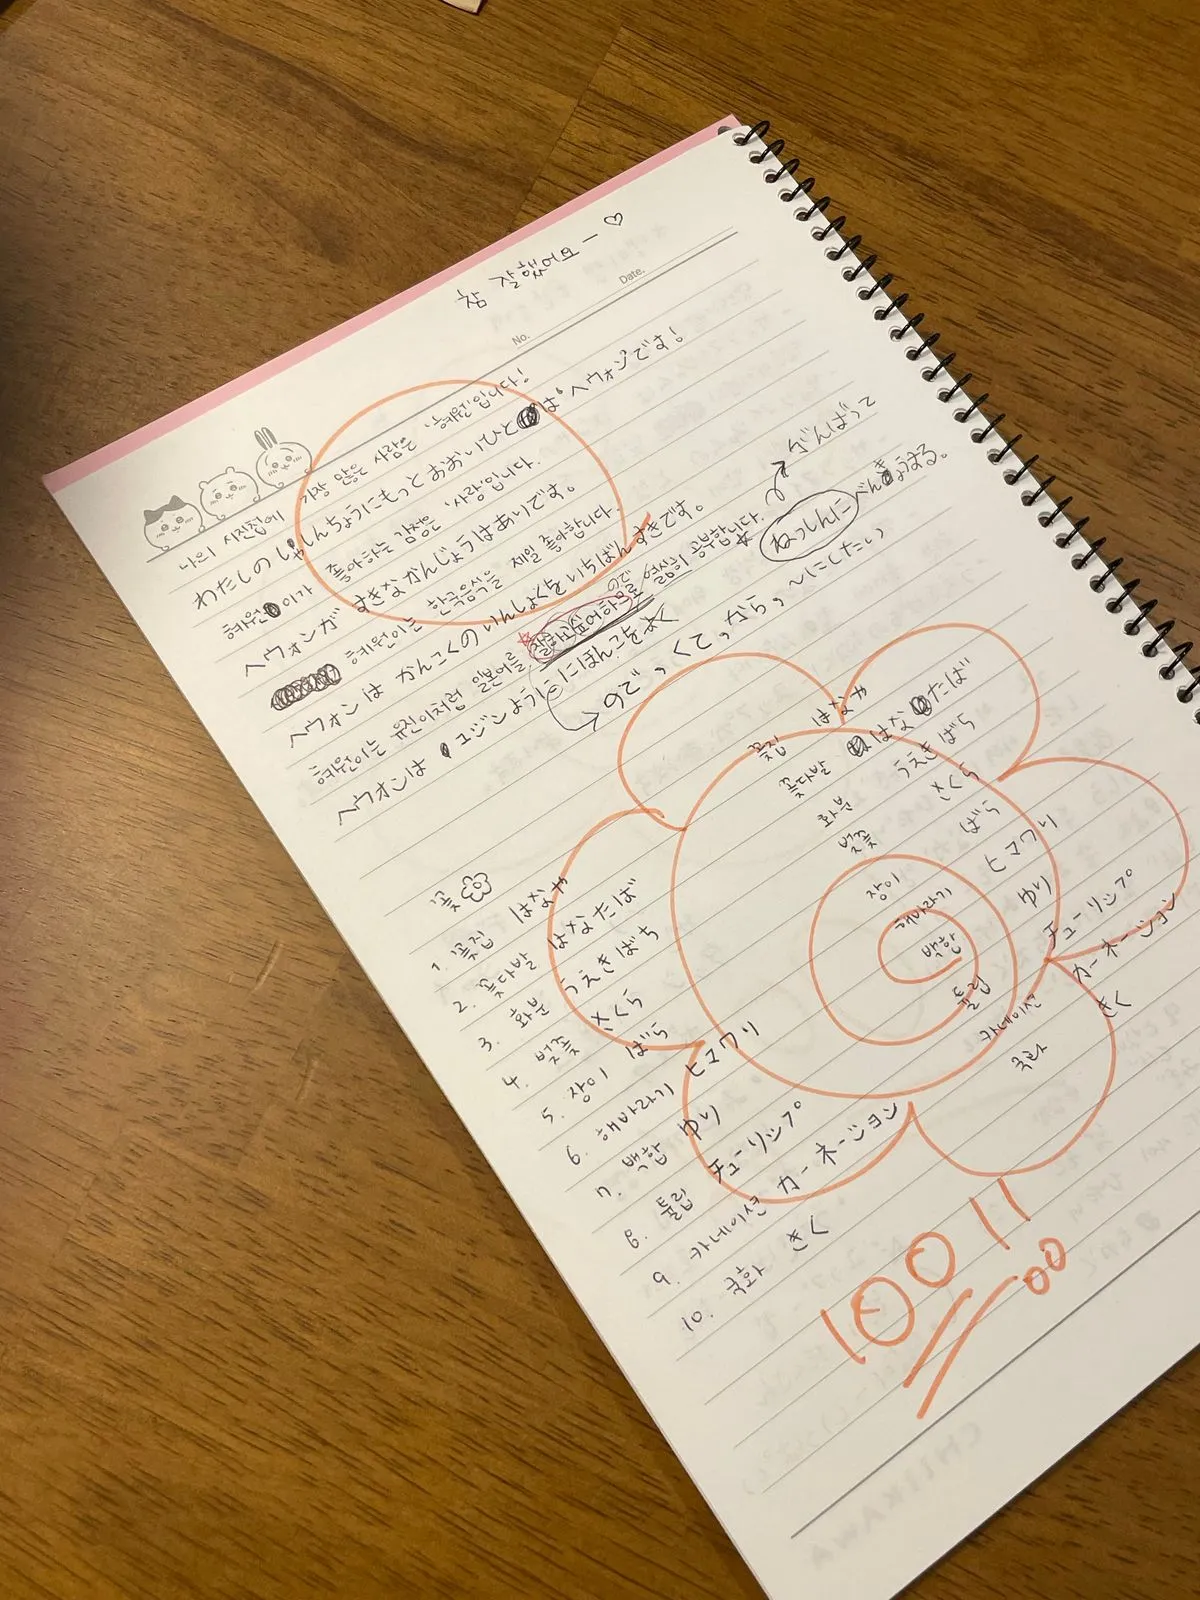 참 잘했어요ー♡
No.
Date.
나의 사진첩에 가장 많은 사람은 '혜원'입니다!
わたしの しゃしんちょうにもっとおおいひと は'ヘウォン'です!
혜원이가 좋아하는 감정은 '사랑'입니다.
ヘウォンガ すきな かんじょうはあいです。
혜원이는 한국음식을 제일 좋아합니다.
ヘウォンは かんこくの いんしょくをいちばんすきです。
혜원이는 유진이처럼 일본어를 잘하고싶어하므로 열심히 공부합니다.
ので
ヘウォンは ユジンように にほんごを
がんばって
ねっしんに べんきょうする。
ので, くて, から, ~にしたい
꽃
1. 꽃집 はなや
2. 꽃다발 はなたば
3. 화분 うえきばち
4. 벚꽃 さくら
5. 장미 ばら
6. 해바라기 ヒマワリ
7. 백합 ゆり
8. 튤립 チューリップ
9. 카네이션 カーネーション
10. 국화 きく
꽃집 はなや
꽃다발 はなたば
화분 うえきばち
벚꽃 さくら
장미 ばら
해바라기 ヒマワリ
백합 ゆり
튤립 チューリップ
카네이션 カーネーション
국화 きく
100